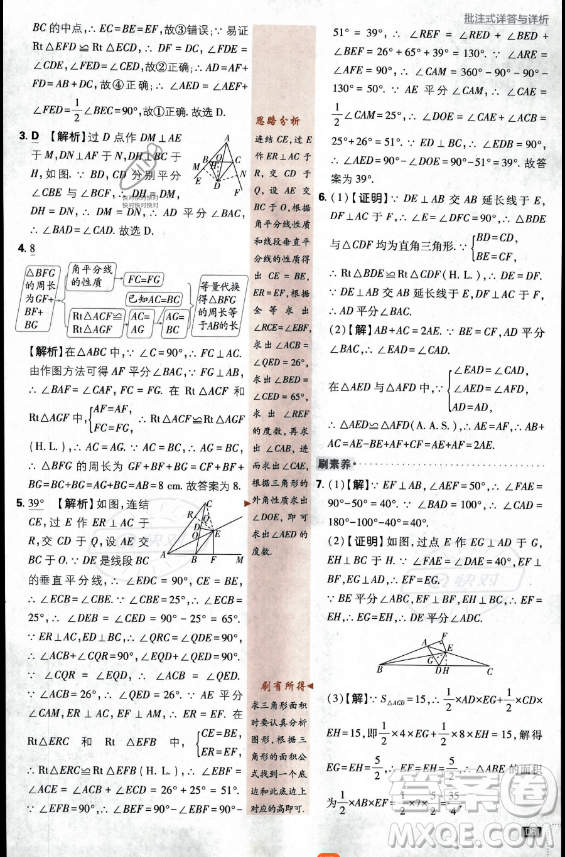 批注式详答与详析
BC 的中点, ∴ EF⊥BC, ∴ ③正确. ∵ 易证
Rt△EFD≌Rt△ECD, ∴ DF=DC, ∠FDE=
∠CDE, ∠FED=∠CED, ∴ ④正确. ∴ AD=AF+
FD=AF+DC, 故①正确. ∵ AF=AF, ∴ ∠AEF+
∠FED=1/2∠BEC=90°, 故②正确. 故选 D.
3. D 【解析】过 D 点作 DM⊥AE
于 M, DN⊥AF 于 N, DH⊥BC 于
H, 如图. ∵ BD, CD 分别平分
∠CBE 与∠BCF, ∴ DH=DM,
DH=DN, ∴ DM=DN, ∴ AD 平分∠BAC,
∴ ∠BAD=∠CAD. 故选 D.
4. 8
△BFG
的周长
为GF+
BF+
BG
角平分线
的性质
FC=FG
已知AC=BC
Rt△ACF≌
Rt△AGF
AC=
AG
AG=
BC
等量代换
得△BFG
的周长等
于AB的长
【解析】在△ABC 中, ∵ ∠C=90°, ∴ FC⊥AC.
由作图方法可得 AF 平分∠BAC, ∵ FG⊥AB,
∴ ∠BAF=∠CAF, FC=FG. 在 Rt△ACF 和
Rt△AGF 中, {AF=AF, FC=FG, ∴ Rt△ACF≌Rt△AGF
(H. L.), ∴ AC=AG. ∵ AC=BC, ∴ AG=BC,
∴ △BFG 的周长为 GF+BF+BG=CF+BF+
BG=BC+BG=AG+BG=AB=8 cm. 故答案为 8.
5. 39° 【解析】如图, 连结
CE, 过 E 作 ER⊥AC 于
R, 交 CD 于 Q, 设 AE 交
CD 于 O. ∵ DE 是线段 BC
的垂直平分线, ∴ ∠EDC=90°, CE=BE,
∴ ∠ECB=∠CBE. ∵ ∠CBE=25°, ∴ ∠ECB=
25°, ∴ ∠DEB=∠CED=90°-25°=65°.
∵ ER⊥AC, ED⊥BC, ∴ ∠QRC=∠QDE=90°,
∴ ∠ACB+∠CQR=90°, ∠EQD+∠QED=90°.
∵ ∠CQR=∠EQD, ∴ ∠ACB=∠QED.
∵ ∠ACB=26°, ∴ ∠QED=26°. ∵ AE 平分
∠CAM, ER⊥AC, EF⊥AM, ∴ ER=EF. 在
Rt△ERC 和 Rt△EFB 中, {CE=BE, ER=EF,
∴ Rt△ERC≌Rt△EFB(H. L.), ∴ ∠EBF=∠RCE.
∵ ∠EFB=90°, ∴ ∠BEF=90°-∠EBF=90°-
思路分析
连结 CE, 过 E
作 ER⊥AC 于
R, 交 CD 于
Q, 设 AE 交
BC 于 O. 根据
角平分线性质
和线段垂直平
分线的性质得
出 CE=BE,
ER=EF, 根据
全等求出
∠RCE=∠EBF,
求出∠ACB=
∠QED=26°,
求出∠BED=
∠CED=65°,
求出∠REF
的度数, 再次
求出∠CAB, 进
而求出∠CAE,
根据三角形的
外角性质求出
∠DOE, 即可
求出∠AED的
度数.
刷有所得
求三角形面积
时要认真分析
图形, 根据三
角形的面积公
式找到一个底
边和此底边上
对应的高即可.
51°=39°, ∴ ∠REF=∠RED+∠BED+
∠BEF=26°+65°+39°=130°, ∴ ∠CAM=
360°-∠AFE-∠ARE-∠REF=360°-90°-90°
-130°=50°. ∵ AE 平分∠CAM, ∴ ∠CAE=
1/2∠CAM=25°, ∴ ∠DOE=∠CAE+∠ACB=
25°+26°=51°. ∵ ED⊥BC, ∴ ∠EDB=90°,
∴ ∠OED=90°-∠DOE=90°-51°=39°. 故答
案为 39°.
6. (1)【证明】∵ DE⊥AB 交 AB 延长线于 E,
DF⊥AC 于 F, ∴ ∠E=∠DFC=90°, ∴ △BDE
与△CDF 均为直角三角形. ∵ {BD=CD, BE=CF,
∴ Rt△BDE≌Rt△CDF(H. L.), ∴ DE=DF.
∵ DE⊥AB 交 AB 延长线于 E, DF⊥AC 于 F,
∴ AD 平分∠BAC.
(2)【解】AB+AC=2AE. ∵ BE=CF, AD 平分
∠BAC, ∴ ∠EAD=∠CAD. ∵ ∠E=∠AFD=90°,
在△AED 与△AFD 中, {∠EAD=∠CAD, ∠AED=∠AFD, AD=AD,
∴ △AED≌△AFD(A. A. S.), ∴ AE=AF, ∴ AB+
AC=AE-BE+AF+CF=AE+AE=2AE.
刷素养
7. (1)【解】∵ EF⊥AB, ∠AEF=50°, ∴ ∠FAE=
90°-50°=40°. ∵ ∠BAD=100°, ∴ ∠CAD=
180°-100°-40°=40°.
(2)【证明】如图, 过点 E 作 EG⊥AD 于 G,
EH⊥BC 于 H. ∵ ∠FAE=∠DAE=40°, EF⊥BF,
EG⊥AD, ∴ EF=EG.
∵ BE 平分∠ABC, EF⊥BF, EH⊥BC, ∴ EF=
EH, ∴ EG=EH, ∴ DE 平分∠ADC.
(3)【解】∵ S△ACD=15, ∴ 1/2×AD×EG+1/2×CD×
EH=15, 即 1/2×4×EG+1/2×8×EH=15, 解得
EG=EH=5/2, ∴ EF=EH=5/2, ∴ △ABE 的面积
为 1/2×AB×EF=1/2×7×5/2=35/4.
答案圈
MXQE.COM